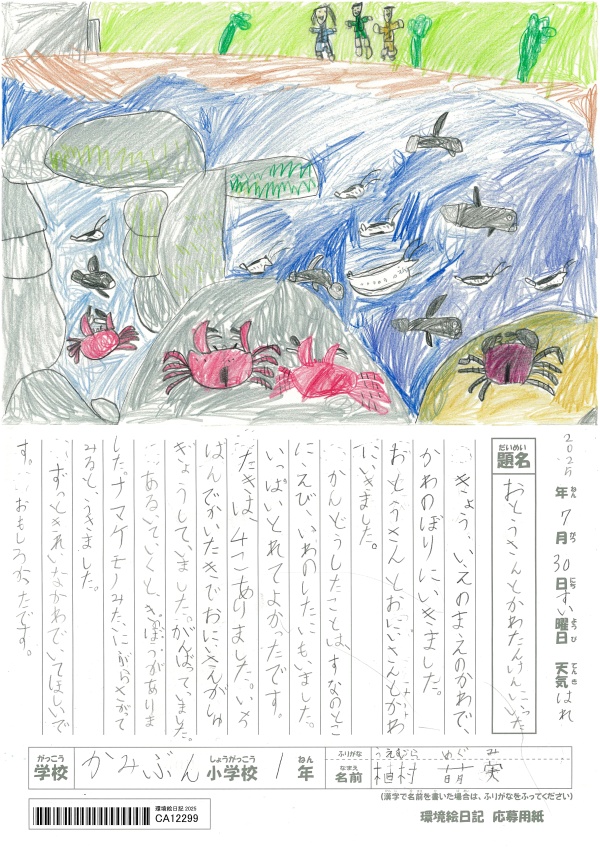 2025年7月30日すい曜日 天気はれ
ねん がつ にち ようび てんき
だいめい
題名
おとうさんとかわたんけんにいった
きょう、いえのまえのかわで、
かわのぼりにいきました。
おとうさんとおにいさんとかわ
にいきました。
かんどうしたことは、すなのとこ
にえび、いわのしたにもいました。
いっぱいとれてよかったです。
たきは、4こありました。いち
ばんでかいたきでおにいさんがしゅ
ぎょうしていました。がんばっていました。
あるいていくと、きぼうがありま
した。ナマケモノみたいにぶらさがて
みると、うきました。
ずっときれいなかわで、いてほしいで
す。おもしろかったです。
がっこう
学校
かみぶん
しょうがっこう
小学校
1
ねん
年
ふりがな
うえむら めぐみ
なまえ
名前
植村 萌実
(漢字で名前を書いた場合は、ふりがなをふってください)
環境絵日記2025
CA12299
環境絵日記 応募用紙